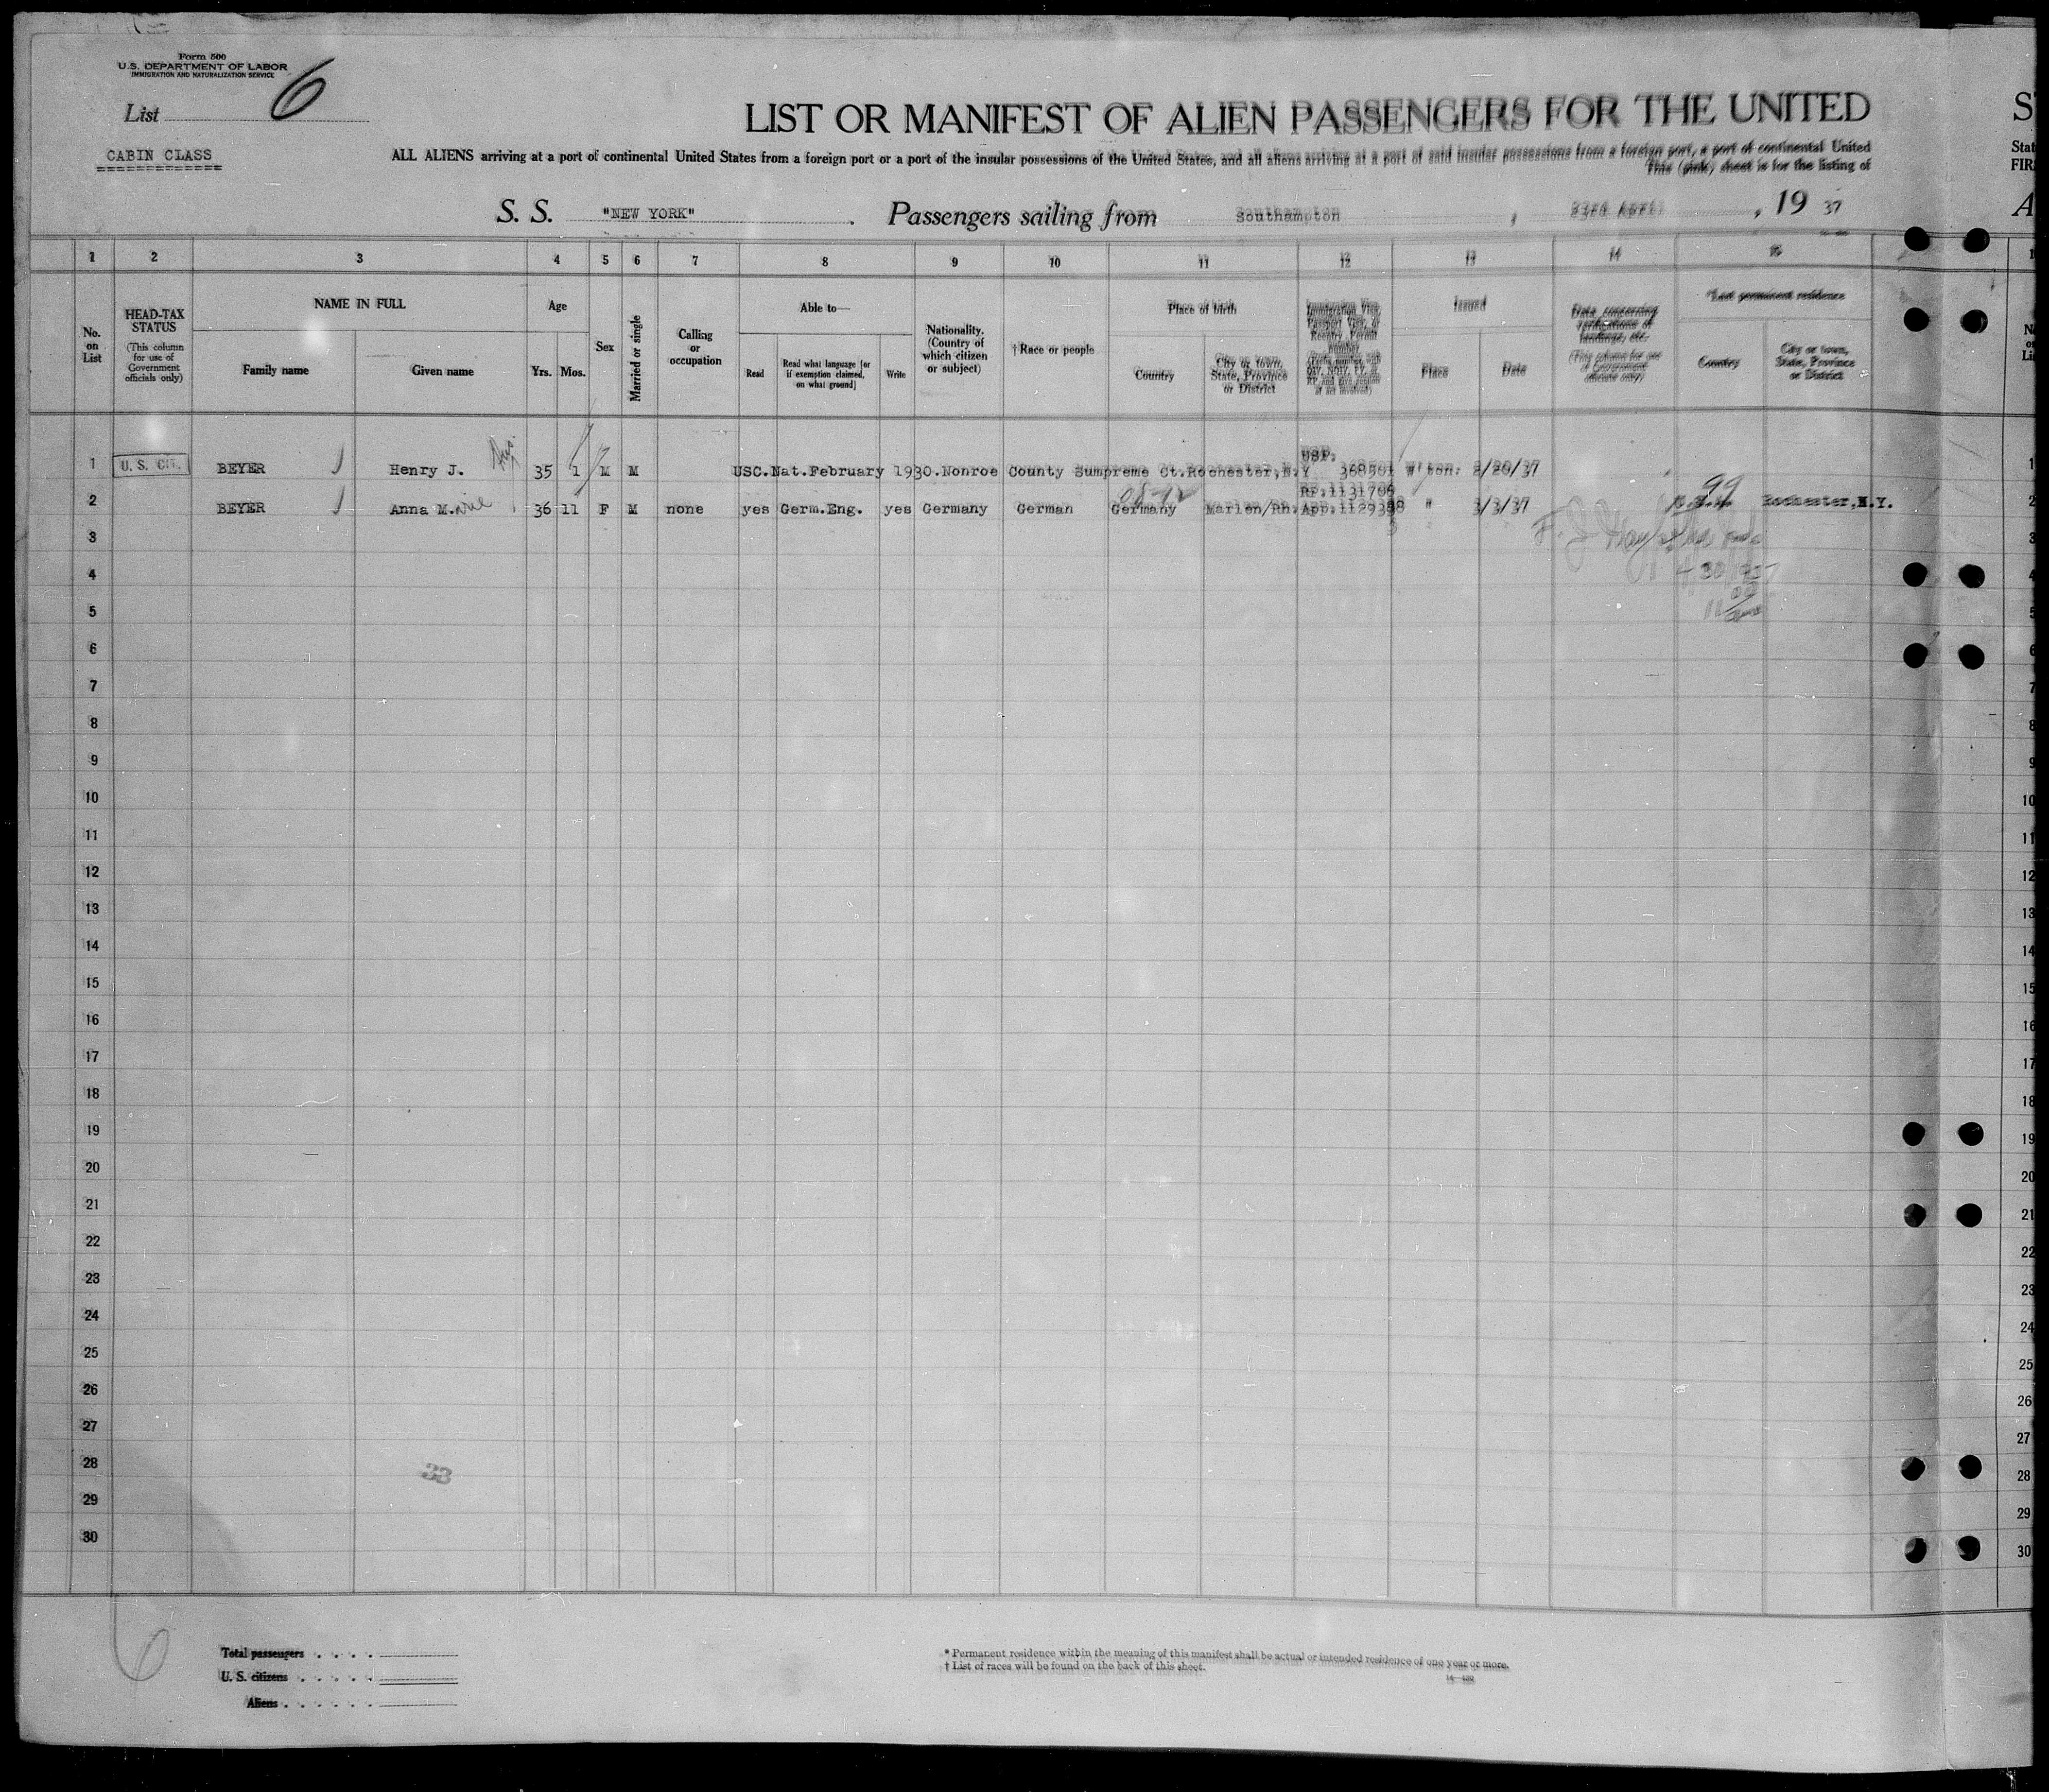 Form 500
U.S. DEPARTMENT OF LABOR
IMMIGRATION AND NATURALIZATION SERVICE
List 6
LIST OR MANIFEST OF ALIEN PASSENGERS FOR THE UNITED
S
CABIN CLASS
ALL ALIENS arriving at a port of continental United States from a foreign port or a port of the insular possessions of the United States, and all aliens arriving at a port of said insular possessions from a foreign port, a port of continental United
Stat
This (pink) sheet is for the listing of
FIR
S. S. "NEW YORK". Passengers sailing from Southampton, 23rd April, 19 37
A
1 2 3 4 5 6 7 8 9 10 11 12 13 14 15
No. on List
HEAD-TAX STATUS
(This column for use of Government officials only)
NAME IN FULL
Family name
Given name
Age
Yrs.
Mos.
Sex
Married or single
Calling or occupation
Able to—
Read
Read what language [or if exemption claimed, on what ground]
Write
Nationality. (Country of which citizen or subject)
† Race or people
Place of birth
Country
City or town, State, Province or District
Immigration Visa, Passport Visa, or Reentry Permit number
Issued
Place
Date
Data concerning verifications of landings, etc.
(This column for use of Government officials only)
*Last permanent residence
Country
City or town, State, Province or District
USP.
1 U. S. CIT. BEYER Henry J. 35 1 M M USC.Nat.February 1930.Nonroe County Sumpreme Ct.Rochester,N.Y W'ton. 2/20/37
RP.1131706
2 BEYER Anna M. 36 11 F M none yes Germ.Eng. yes Germany German Germany " 3/3/37 Rochester,N.Y.
99
3
4
5
6
7
8
9
10
11
12
13
14
15
16
17
18
19
20
21
22
23
24
25
26
27
28
33
29
30
6
Total passengers
U. S. citizens
Aliens
* Permanent residence within the meaning of this manifest shall be actual or intended residence of one year or more.
† List of races will be found on the back of this sheet.